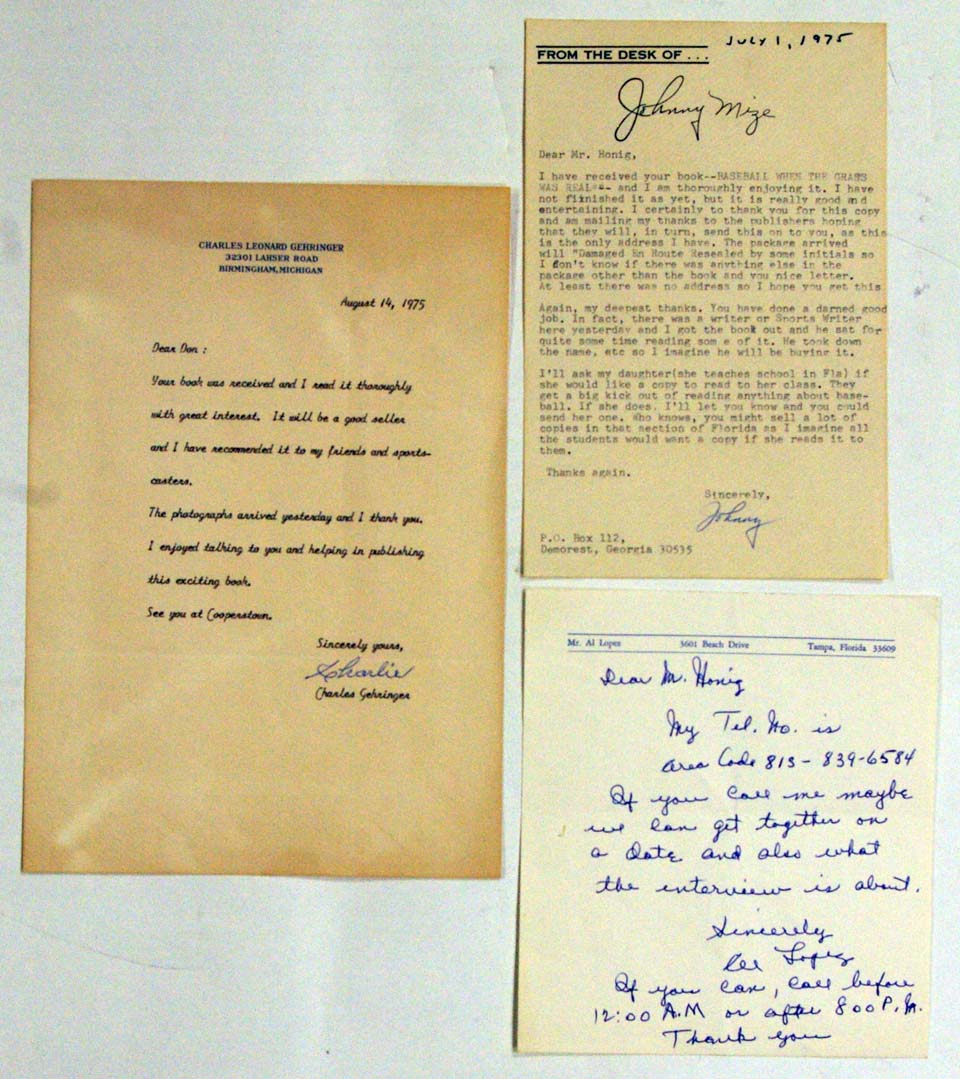 CHARLES LEONARD GEHRINGER
32301 LAHSER ROAD
BIRMINGHAM, MICHIGAN
August 14, 1975
Dear Don :
Your book was received and I read it thoroughly
with great interest. It will be a good seller
and I have recommended it to my friends and sports-
casters.
The photographs arrived yesterday and I thank you.
I enjoyed talking to you and helping in publishing
this exciting book.
See you at Cooperstown.
Sincerely yours,
Charlie
Charles Gehringer
JULY 1, 1975
FROM THE DESK OF . . .
Johnny Mize
Dear Mr. Honig,
I have received your book--BASEBALL WHEN THE GRASS
WAS REAL-- and I am thoroughly enjoying it. I have
not fiinished it as yet, but it is really good and
entertaining. I certainly to thank you for this copy
and am mailing my thanks to the publishers hoping
that they will, in turn, send this on to you, as this
is the only address I have. The package arrived
will "Damaged En Route Resealed by some initials so
I don't know if there was anything else in the
package other than the book and you nice letter.
At least there was no address so I hope you get this
Again, my deepest thanks. You have done a darned good
job. In fact, there was a writer or Sports Writer
here yesterday and I got the book out and he sat for
quite some time reading som e of it. He took down
the name, etc so I imagine he will be buying it.
I'll ask my daughter(she teaches school in Fla) if
she would like a copy to read to her class. They
get a big kick out of reading anything about base-
ball. If she does, I'll let you know and you could
send her one. Who knows, you might sell a lot of
copies in that section of Florida as I imagine all
the students would want a copy if she reads it to
them.
Thanks again.
Sincerely,
Johnny
P.O. Box 112,
Demorest, Georgia 30535
Mr. Al Lopez 3601 Beach Drive Tampa, Florida 33609
Dear Mr. Honig
My Tel. No. is
area Code 813 - 839-6584
If you call me maybe
we can get together on
a date and also what
the interview is about.
Sincerely
Al Lopez
If you can, call before
12:00 A.M or after 8 00 P.M.
Thank you